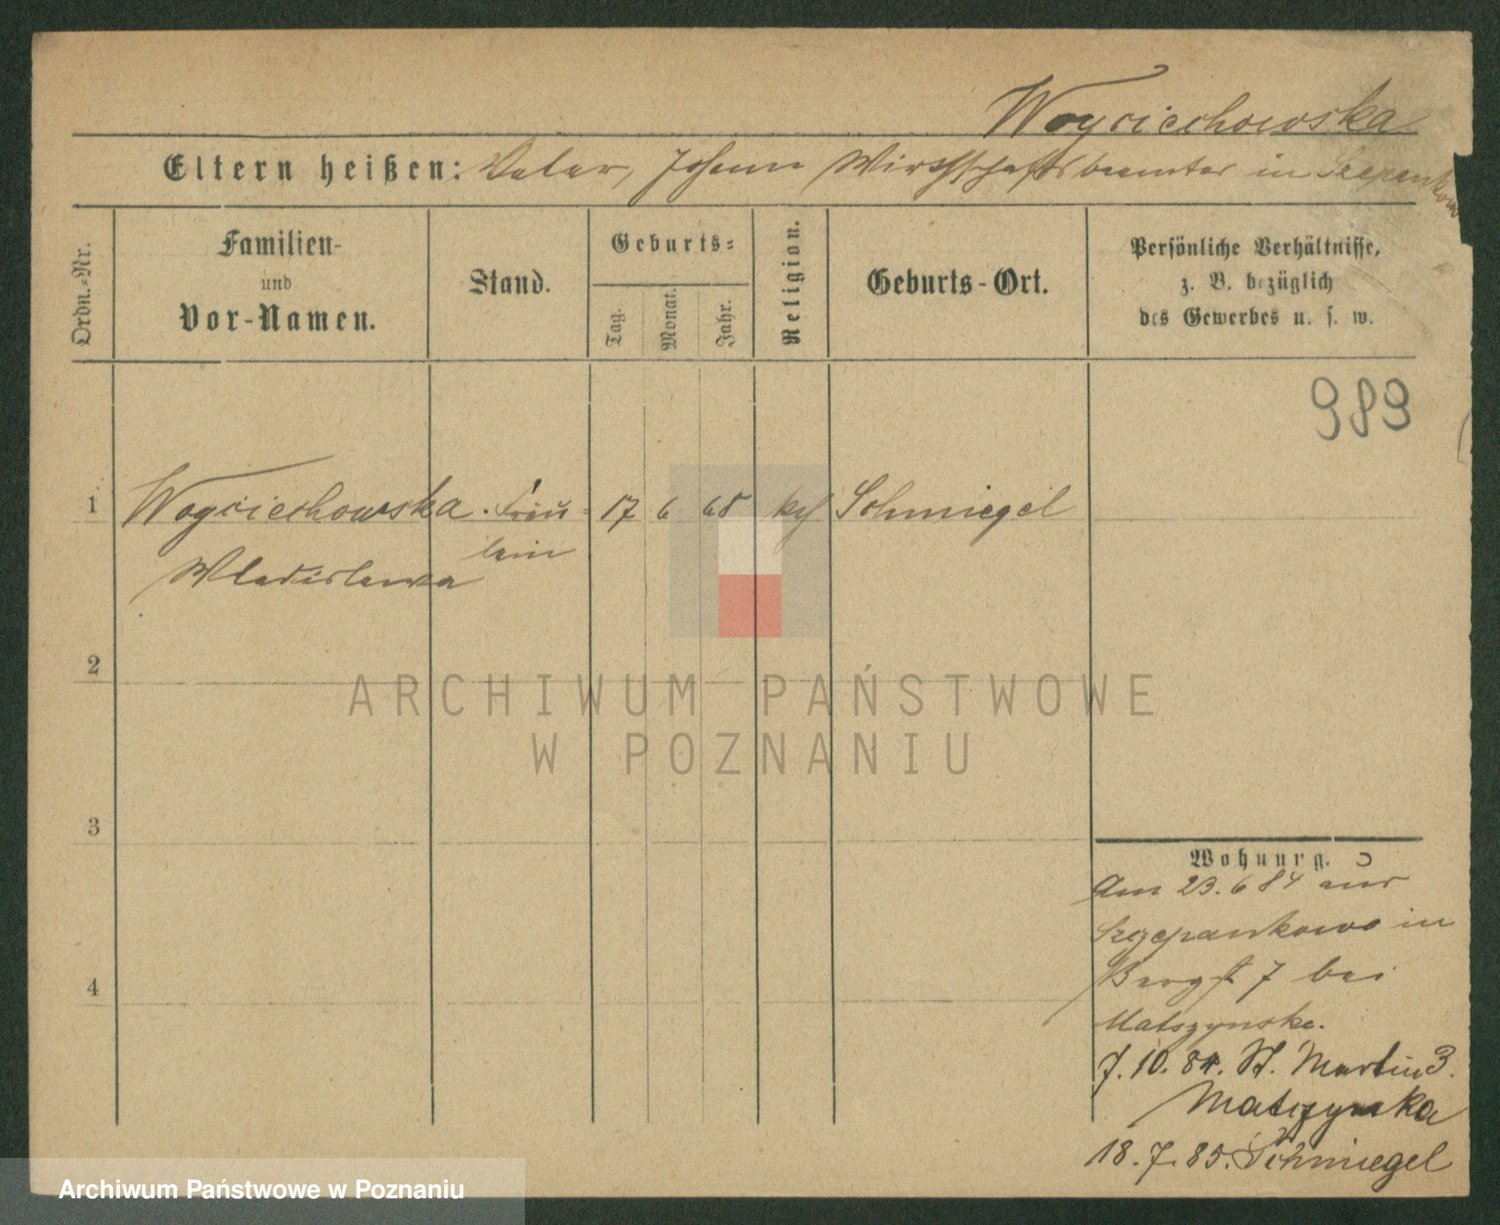 Woyciechowska
Eltern heißen: Vater, Johann Wirthschaftsbeamter in Szepankowo
Ordn.-Nr.
Familien-
und
Vor-Namen.
Stand.
Geburts-
Tag.
Monat.
Jahr.
Religion.
Geburts-Ort.
Persönliche Verhältnisse,
z. B. bezüglich
des Gewerbes u. s. w.
989
1 Woyciechowska Fräu- 17 6 68 kath Schmiegel
Wladislawa lein
2
3
4
Wohnung.
Am 23. 6 84 aus
Szczepankowo in
Bergst 7 bei
Matszynska.
7. 10. 84. St. Martin 3.
Matszynska
18. 7. 85. Schmiegel
ARCHIWUM PAŃSTWOWE
W POZNANIU
Archiwum Państwowe w Poznaniu